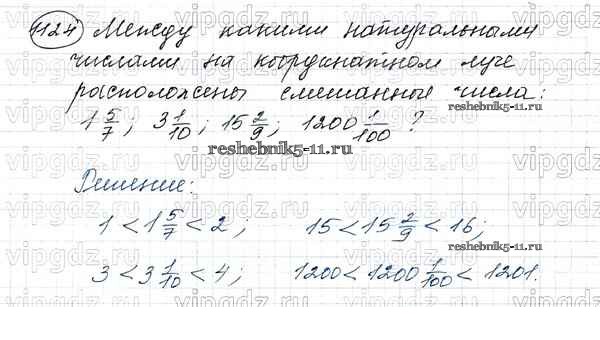 1124 Между какими натуральными
числами на координатном луче
расположены смешанные числа:
1 5/7; 3 1/10; 15 2/9; 1200 1/100 ?
reshebnik5-11.ru
reshebnik5-11.ru
Решение:
1 < 1 5/7 < 2; 15 < 15 2/9 < 16;
reshebnik5-11.ru
3 < 3 1/10 < 4; 1200 < 1200 1/100 < 1201.
vipgdz.ru